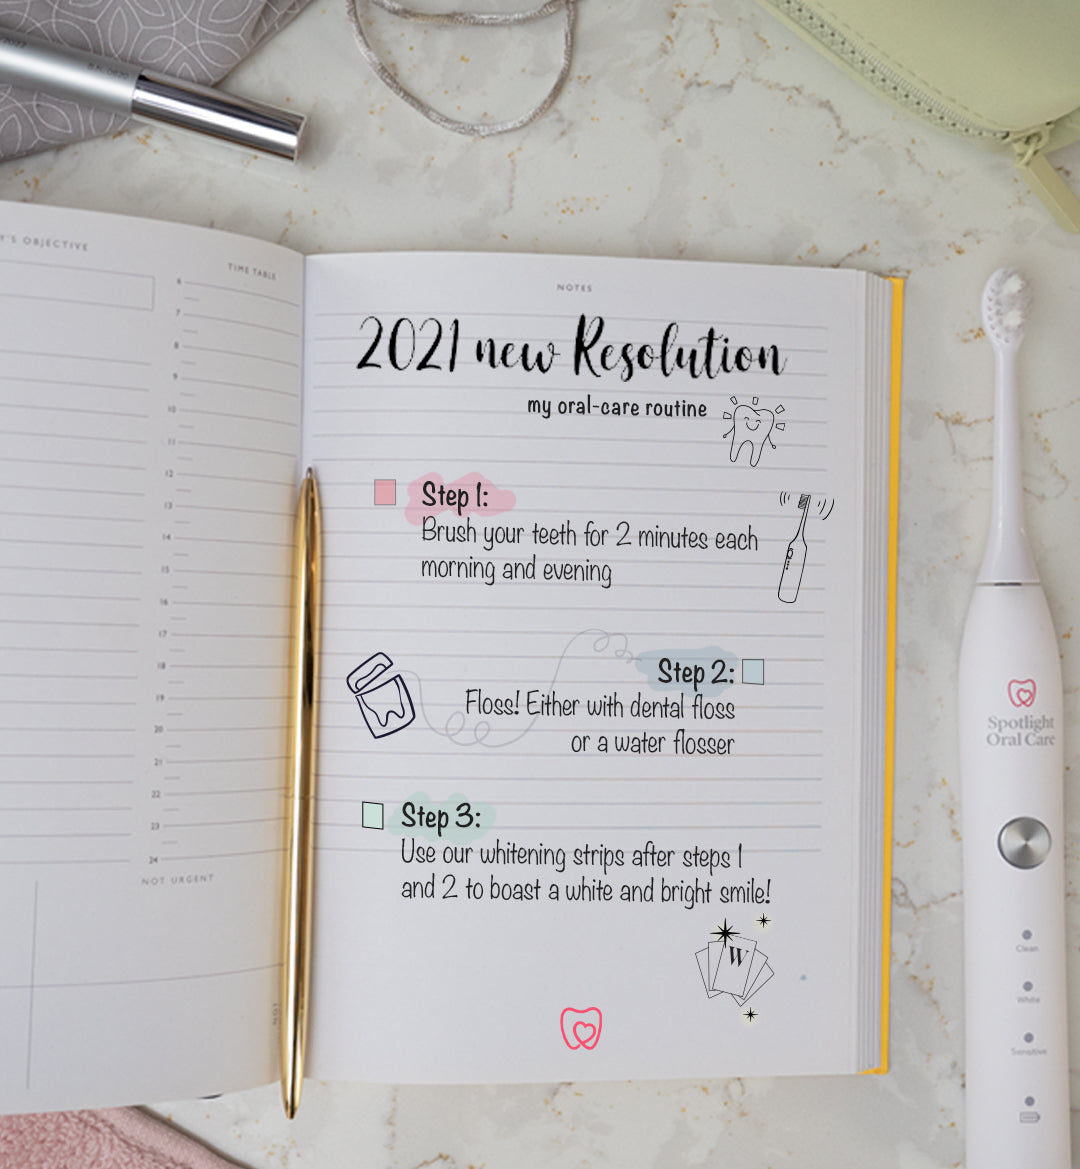 Y'S OBJECTIVE
TIME TABLE
6
7
8
9
10
11
12
13
14
15
16
17
18
19
20
21
22
23
24
NOT URGENT
NOTES
2021 new Resolution
my oral-care routine
Step 1:
Brush your teeth for 2 minutes each
morning and evening
Step 2:
Floss! Either with dental floss
or a water flosser
Step 3:
Use our whitening strips after steps 1
and 2 to boast a white and bright smile!
W
Spotlight
Oral Care
Clean
White
Sensitive